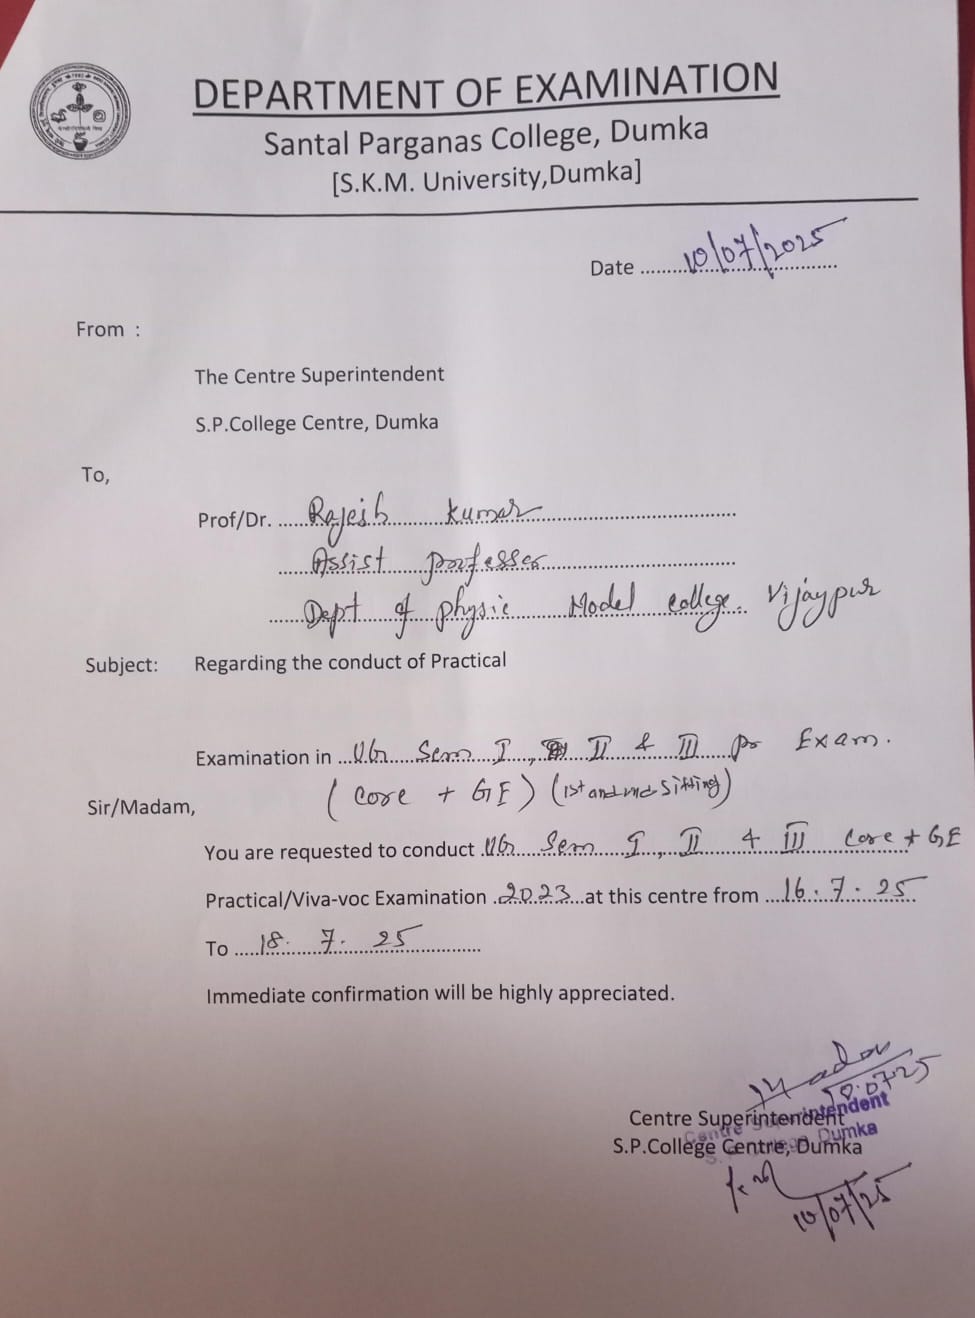 DEPARTMENT OF EXAMINATION
Santal Parganas College, Dumka
[S.K.M. University,Dumka]
Date ........10/07/2025
From :
The Centre Superintendent
S.P.College Centre, Dumka
To,
Prof/Dr. Rajesh Kumar
Assist professer
Dept of physic Model college. Vijaypur
Subject: Regarding the conduct of Practical
Examination in UG Sem I, II & III Exam.
(Core + GE) (1st and 2nd Sitting)
Sir/Madam,
You are requested to conduct UG Sem I, II & III Core + GE
Practical/Viva-voc Examination 2023 at this centre from 16.7.25
To 18.7.25
Immediate confirmation will be highly appreciated.
10.07.25
Centre Superintendent
S.P.College Centre, Dumka
Centre Superintendent
S. P. College Dumka
10/07/25